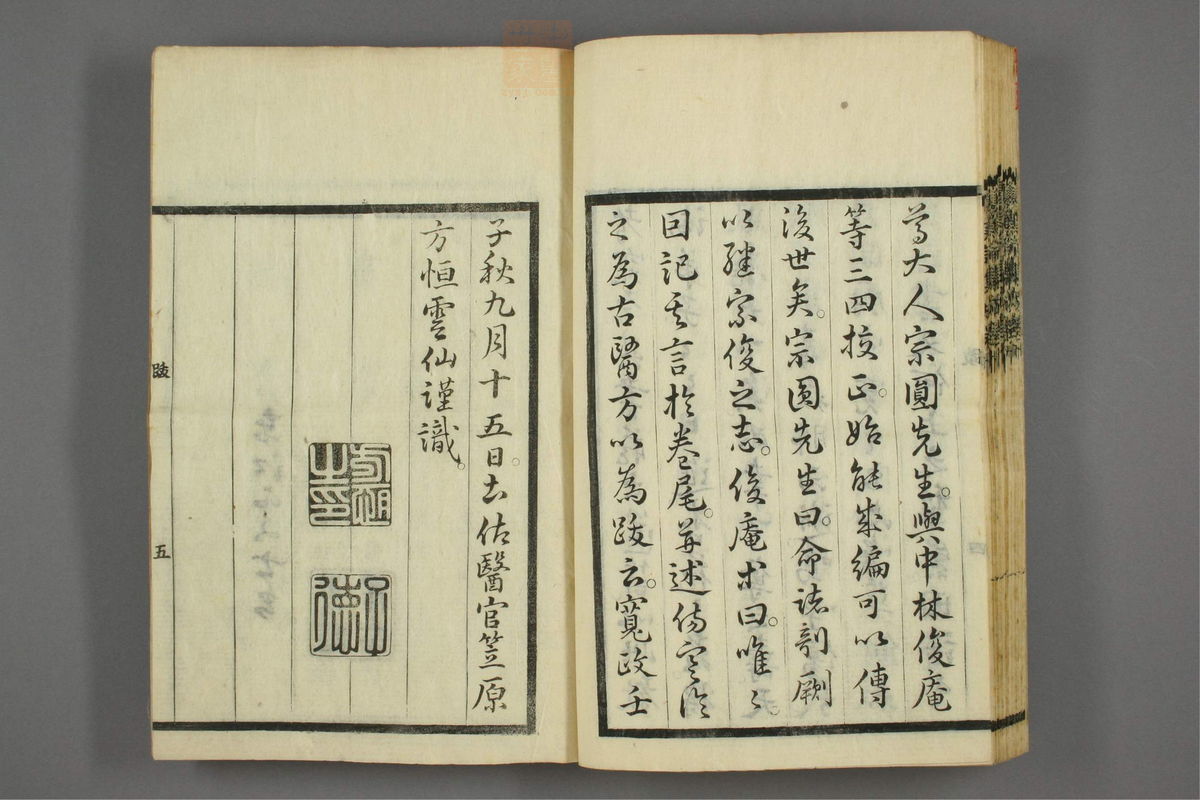 尊大人宗圓先生。與中林俊庵
等三四挍正。始能成編可以傳
後世矣。宗圓先生曰。命諸剞劂
以継宗俊之志。俊庵求曰。唯〻。
回記其言於巻尾。并述傷寒論
之為古醫方以為跋云。寬政壬
子秋九月十五日。土佐醫官笠原
方恒雲仙謹識。
跋
五